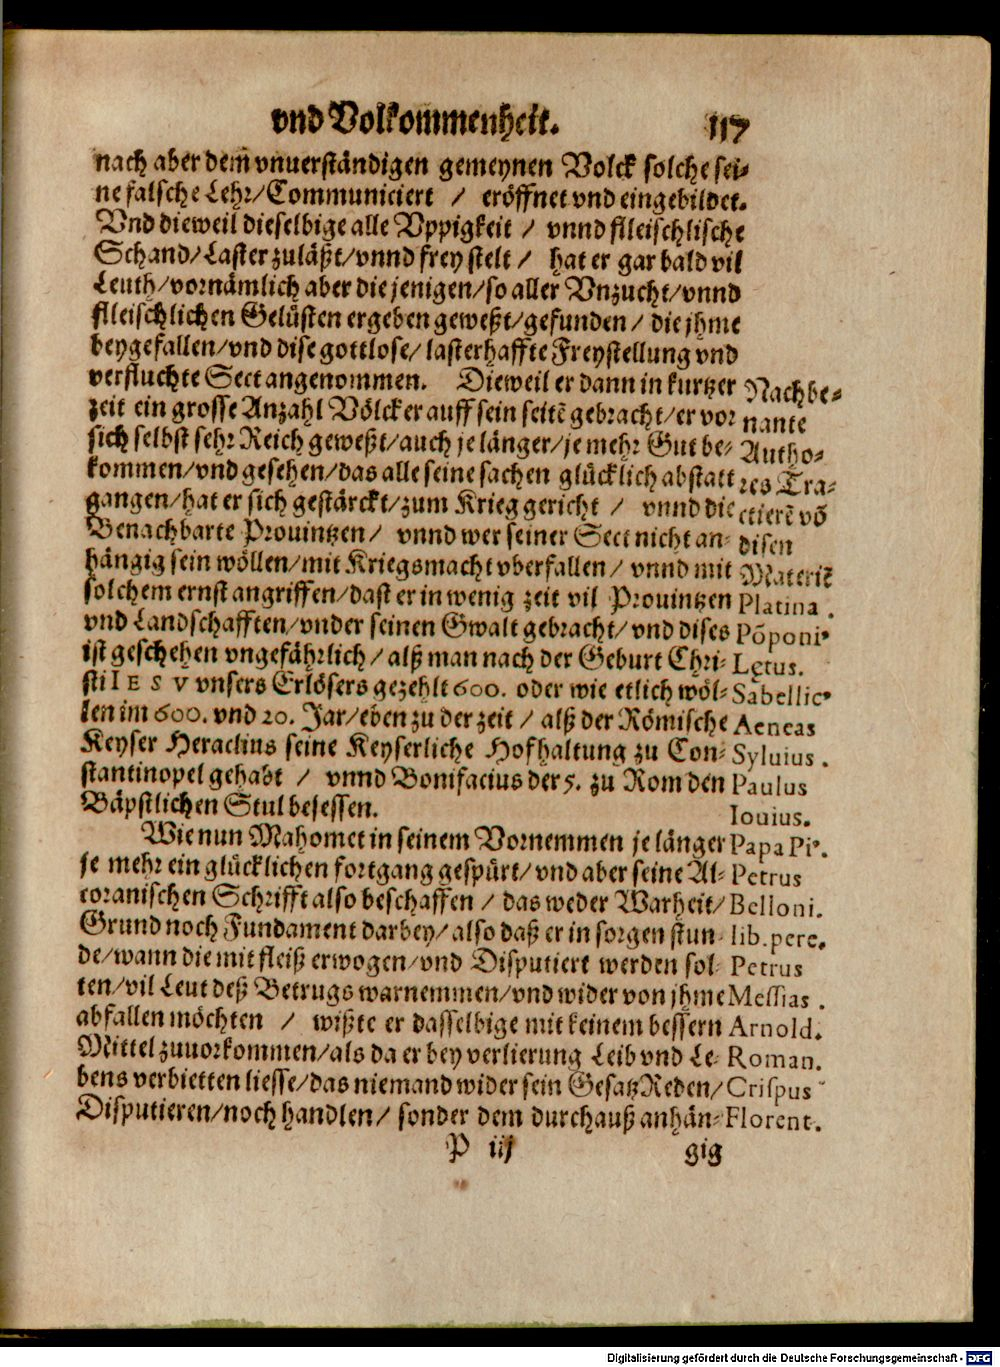 vnd Volkommenheit. 117
nach aber dem̄ vnuerständigen gemeynen Volck solche sei-
ne falsche Lehr/Communiciert / eröffnet vnd eingebildet.
Vnd dieweil dieselbige alle Vppigkeit / vnnd flleischlische
Schand/Laster zuläßt/vnnd frey stelt / hat er gar bald vil
Leuth/vornämlich aber die jenigen/so aller Vnzucht/vnnd
flleischlichen Gelüsten ergeben geweßt/gefunden / die jhme
beygefallen/vnd dise gottlose/ lasterhaffte Freystellung vnd
verfluchte Sect angenommen. Dieweil er dann in kurtzer
zeit ein grosse Anzahl Völcker auff sein seitē gebracht/er vor
sich selbst sehr Reich geweßt/auch je länger/je mehr Gut be-
kommen/vnd gesehen/das alle seine sachen glücklich abstatt
gangen/hat er sich gestärckt/zum Krieg gericht / vnnd die
Benachbarte Prouintzen / vnnd wer seiner Sect nicht an-
hängig sein wöllen/mit Kriegsmacht vberfallen/ vnnd mit
solchem ernst angriffen/dast er in wenig zeit vil Prouintzen
vnd Landschafften/vnder seinen Gwalt gebracht/vnd dises
ist geschehen vngefährlich/alß man nach der Geburt Chri-
sti IESV vnsers Erlösers gezehlt 600. oder wie etlich wöl-
len im 600. vnd 20. Jar/eben zu der zeit / alß der Römische
Keyser Heraclius seine Keyserliche Hofhaltung zu Con-
stantinopel gehabt / vnnd Bonifacius der 5. zu Rom den
Bäpstlichen Stul besessen.
Wie nun Mahomet in seinem Vornemmen je länger
je mehr ein glücklichen fortgang gespürt/vnd aber seine Al-
coranischen Schrifft also beschaffen / das weder Warheit/
Grund noch Fundament darbey/also daß er in sorgen stun-
de/wann die mit fleiß erwogen/vnd Disputiert werden sol-
ten/vil Leut deß Betrugs warnemmen/vnd wider von jhme
abfallen möchten / wißte er dasselbige mit keinem bessern
Mittel zuuorkommen/als da er bey verlierung Leib vnd Le-
bens verbietten liesse/das niemand wider sein Gesatz Reden/
Disputieren/noch handlen/ sonder dem durchauß anhän-
Nachbe-
nante
Autho-
res Tra-
ctierē vō
disen
Materiē
Platina.
Pōponi9
Lętus.
Sabellic9
Aeneas
Syluius.
Paulus
Iouius.
Papa Pi9.
Petrus
Belloni.
lib. pere.
Petrus
Messias.
Arnold.
Roman.
Crispus
Florent.
P iij gig
Digitalisierung gefördert durch die Deutsche Forschungsgemeinschaft - DFG